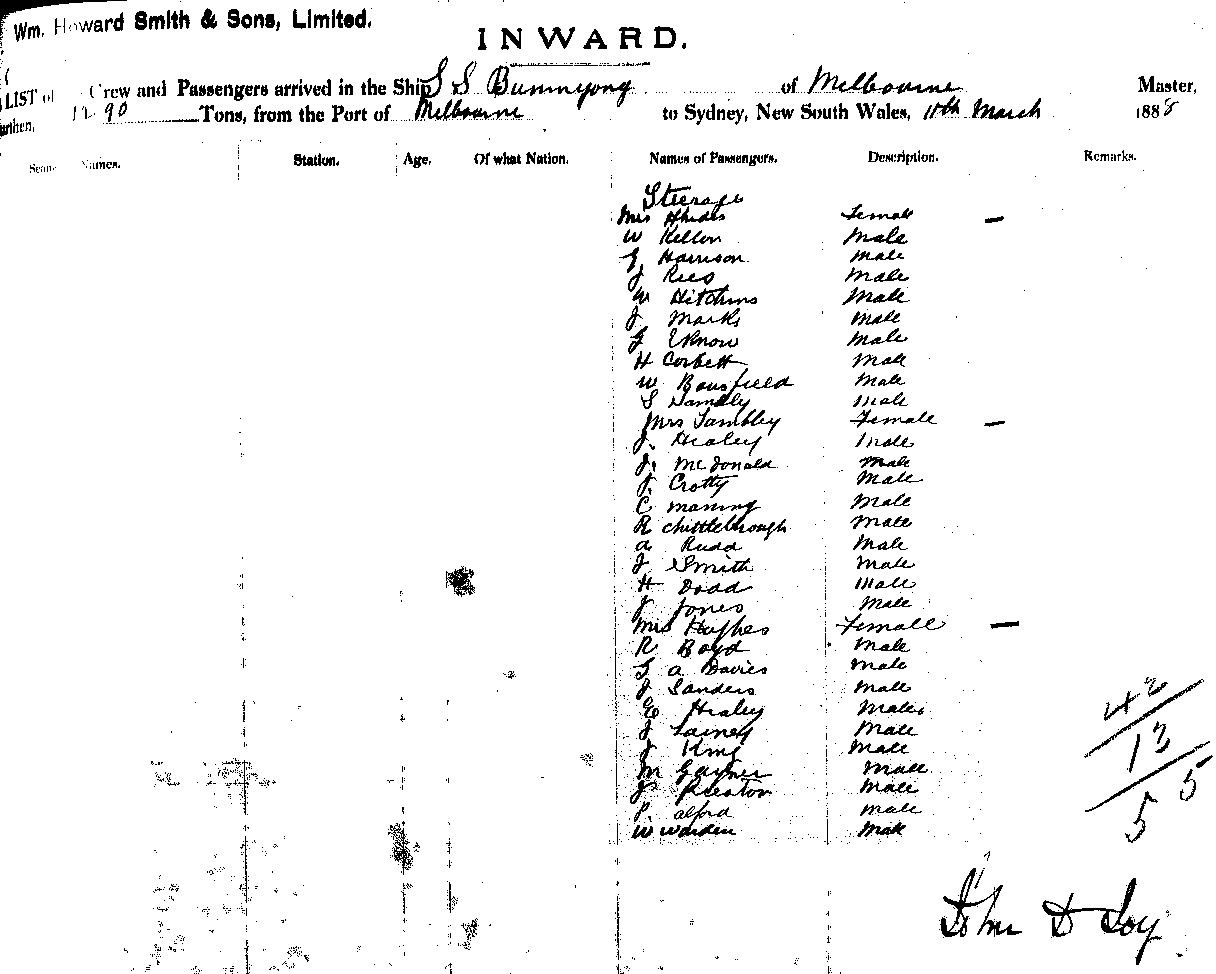 Wm. Howard Smith & Sons, Limited.
INWARD.
LIST of Crew and Passengers arrived in the Ship S S Bunninyong of Melbourne Master,
Burthen, 1290 Tons, from the Port of Melbourne to Sydney, New South Wales, 11th March 1888
Names. Station. Age. Of what Nation. Names of Passengers. Description. Remarks.
Steerage
Mrs Female —
W Male
G Harrison Male
J Rees Male
W Hitchins Male
J Marks Male
J Male
H Corbett Male
W Bousfield Male
S Male
Mrs Tambley Female —
J. Healey Male
J. McDonald Male
J. Crotty Male
C Manning Male
R Chittlebrough Male
A Rudd Male
J Smith Male
H Dodd Male
J Jones Male
Mrs Hughes Female —
R Boyd Male
G A Davies Male
J Sanders Male
E Healey Male
J Male
J King Male
M Male
J Preston Male
P. Alford Male
W Warden Male
42
13
55
John D